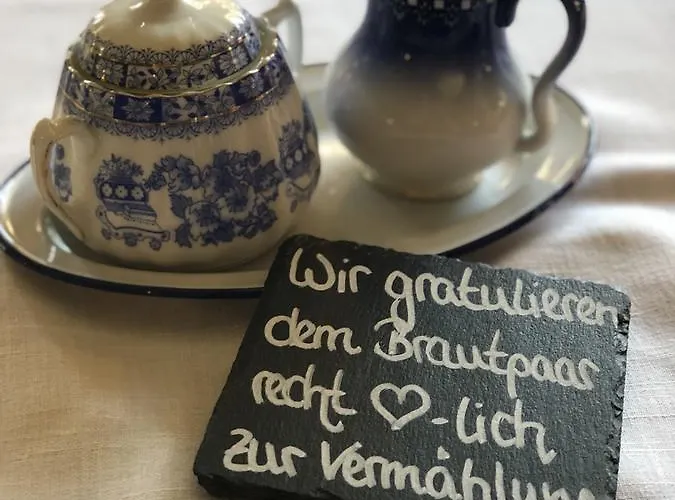 Wir gratulieren
dem Brautpaar
recht ♡-lich
zur Vermählung